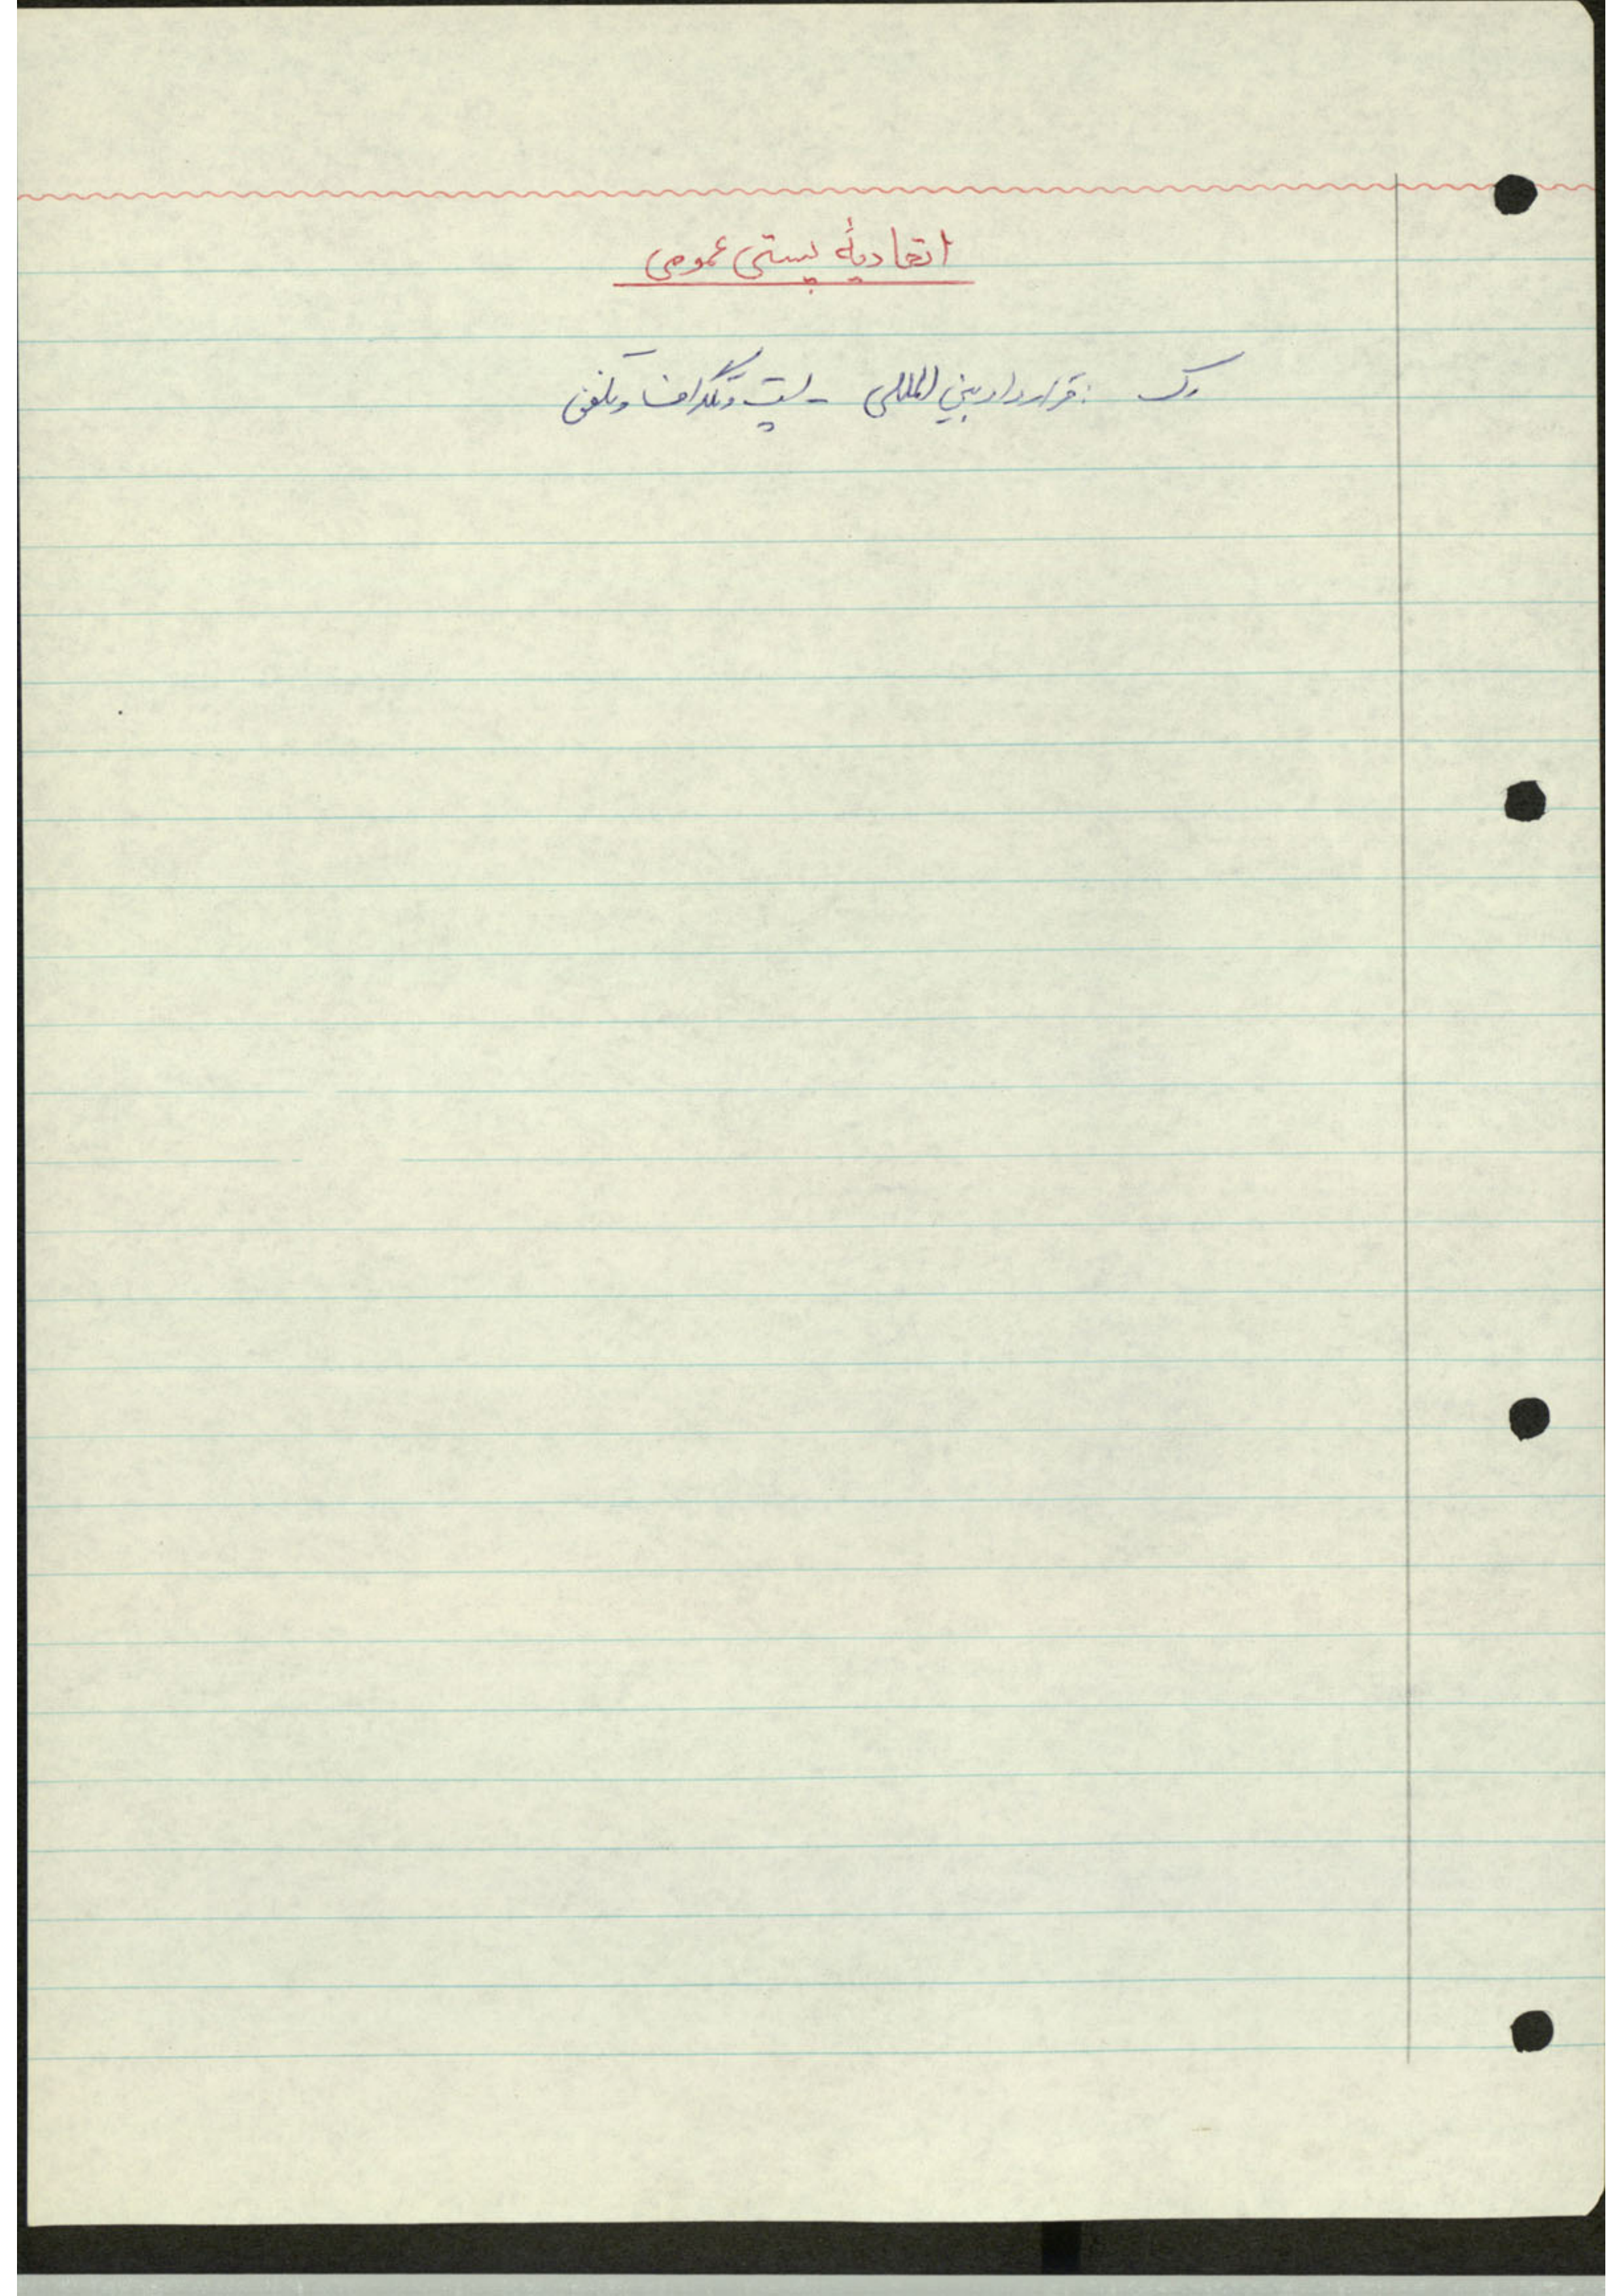 اتحادیهٔ پستی عمومی
رک : قرارداد بین المللی - پست و تلگراف و تلفن